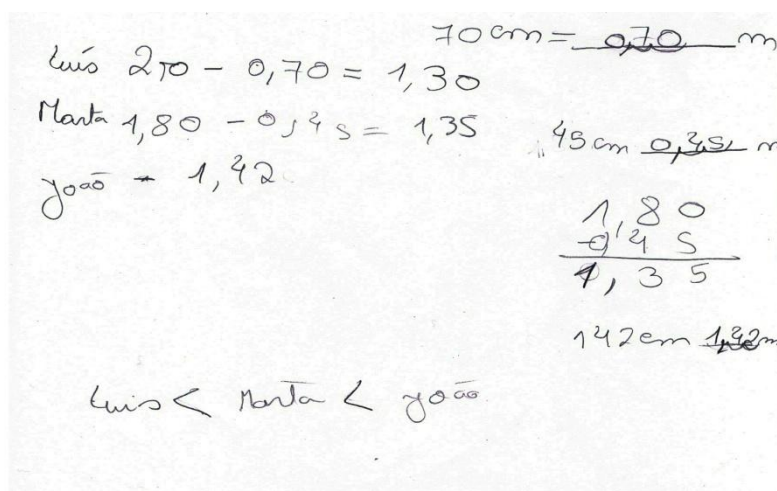 70 cm = 0,70 m
Luís 2,0 - 0,70 = 1,30
Marta 1,80 - 0,45 = 1,35
45 cm 0,45 m
João - 1,42
1,80
-0,45
1,35
142 cm 1,42 m
Luis < Marta < João